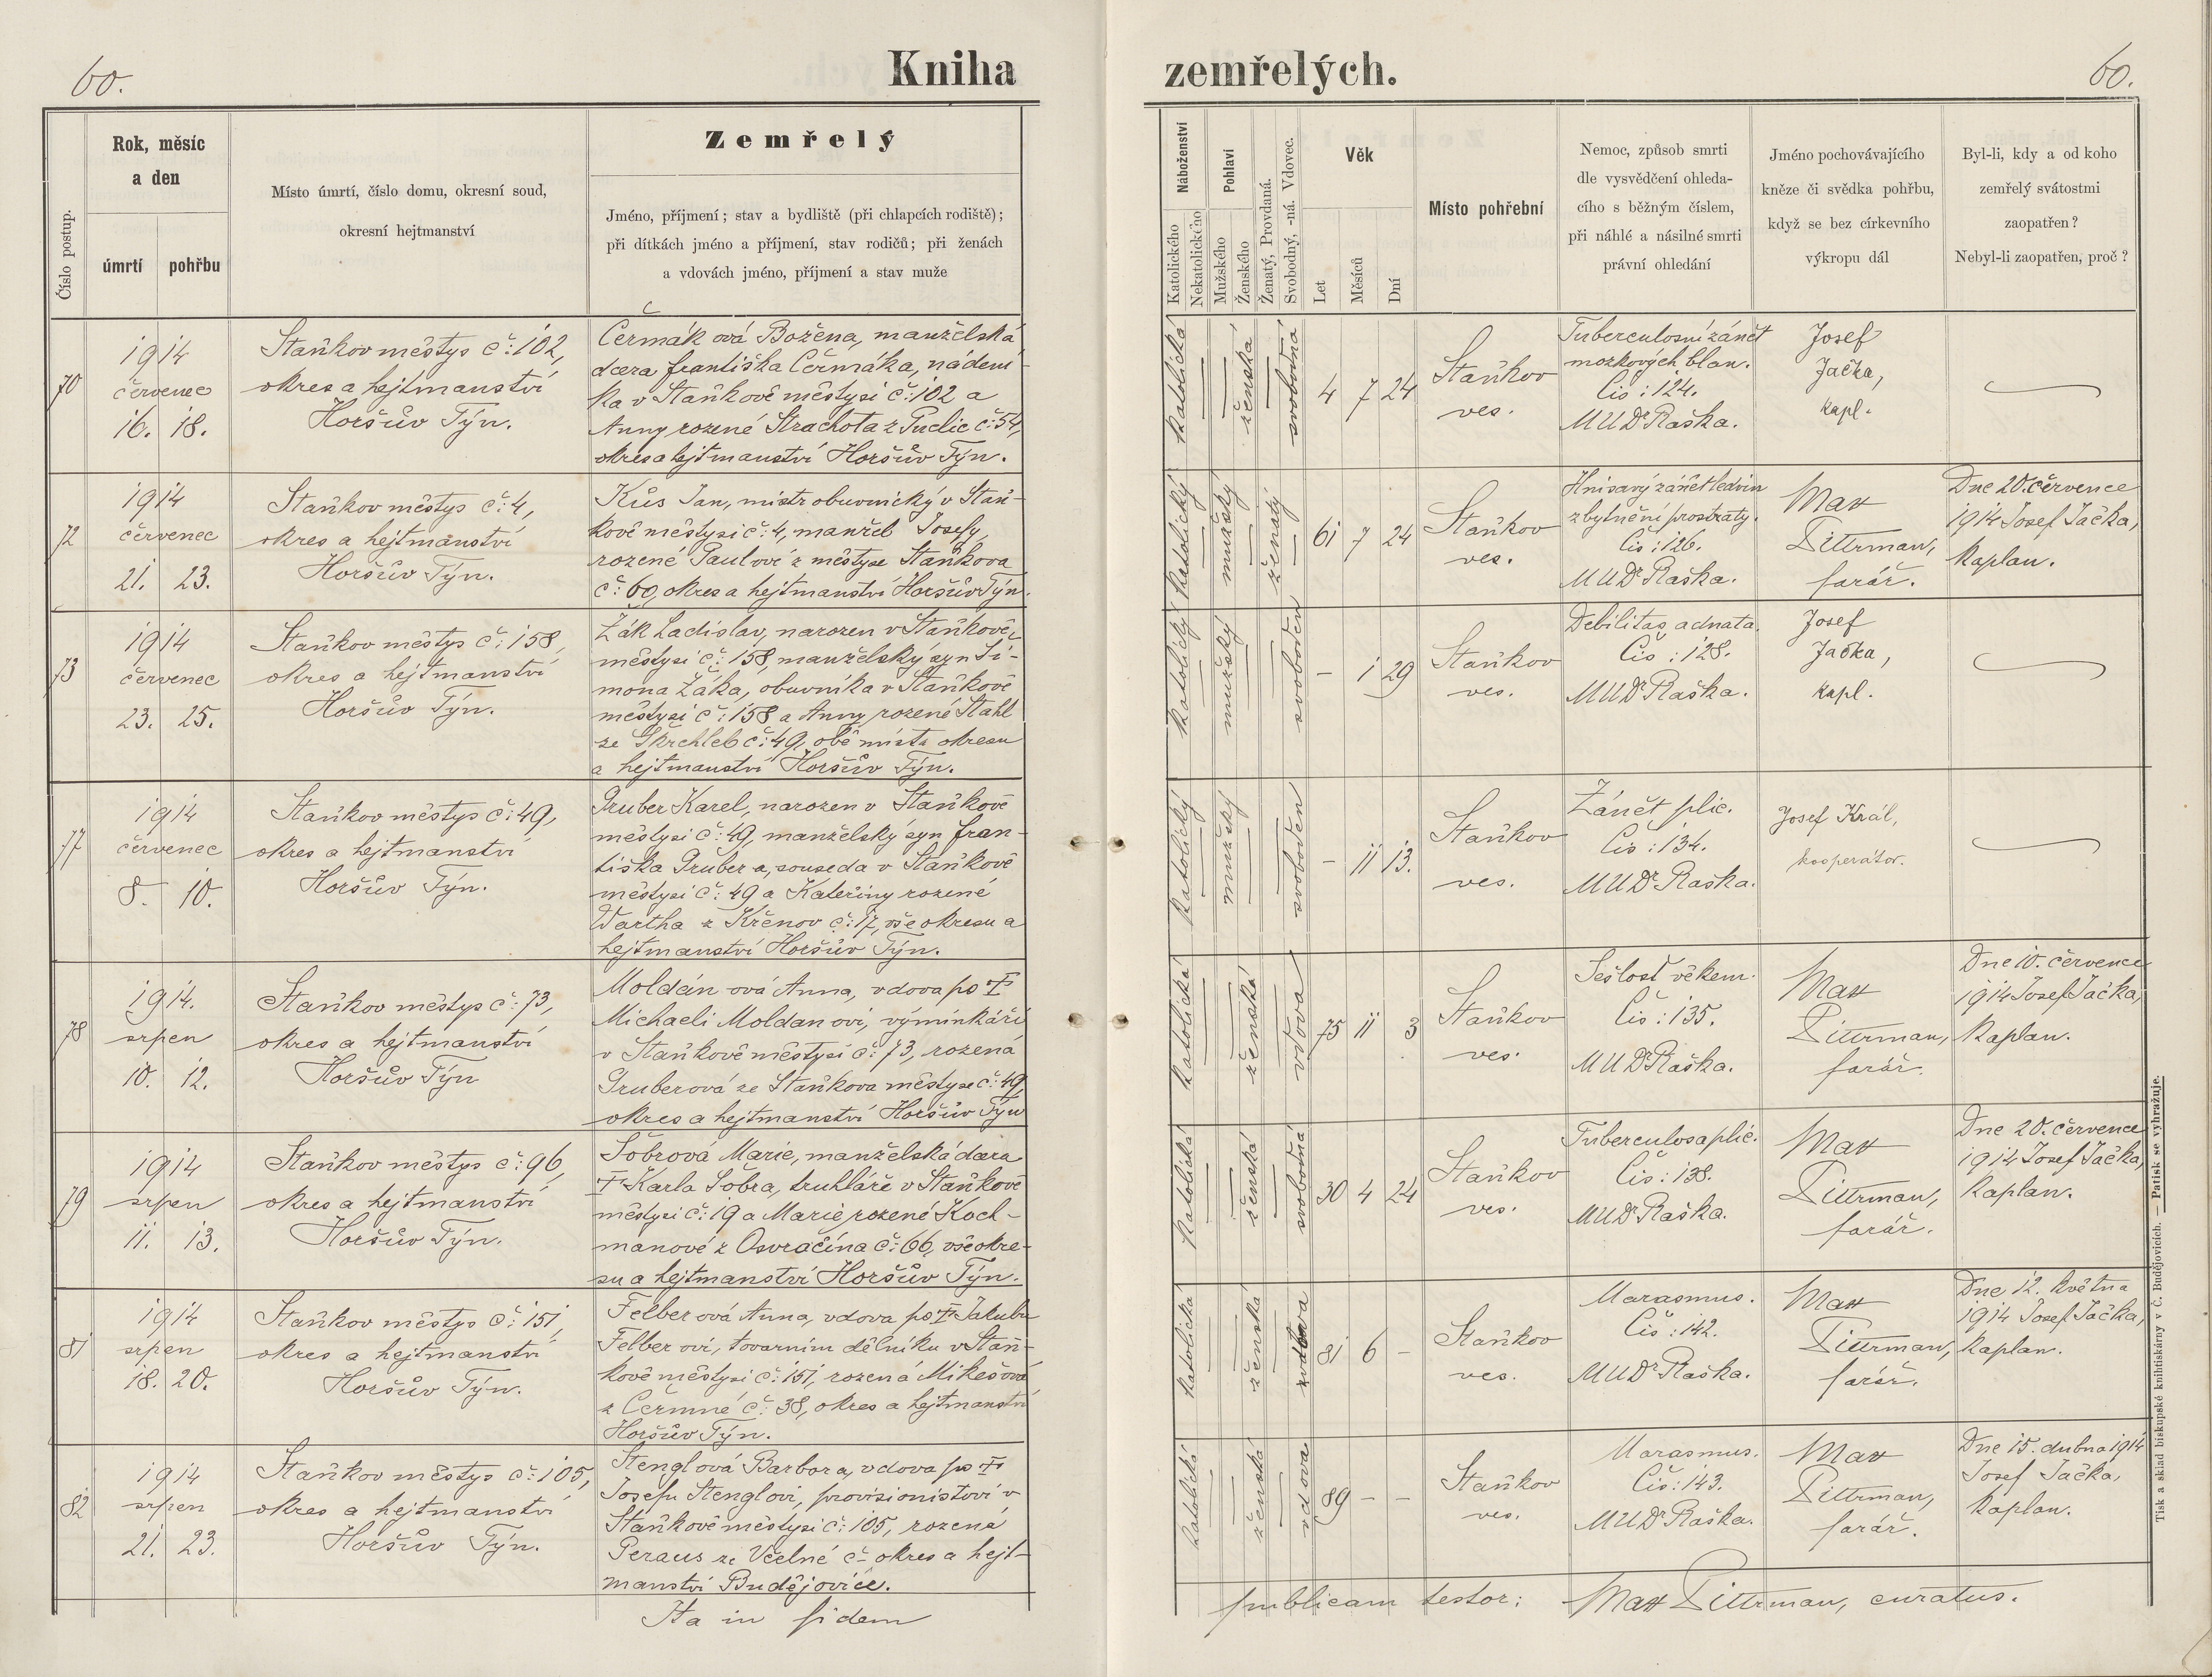 60.
Kniha
zemřelých.
60.
Číslo postup.
Rok, měsíc
a den
úmrtí
pohřbu
Místo úmrtí, číslo domu, okresní soud,
okresní hejtmanství
Zemřelý
Jméno, příjmení; stav a bydliště (při chlapcích rodiště);
při dítkách jméno a příjmení, stav rodičů; při ženách
a vdovách jméno, příjmení a stav muže
Náboženství
Katolického
Nekatolického
Pohlaví
Mužského
Ženského
Ženatý, Provdaná.
Svobodný, -ná. Vdovec.
Věk
Let
Měsíců
Dní
Místo pohřební
Nemoc, způsob smrti
dle vysvědčení ohleda-
cího s běžným číslem,
při náhlé a násilné smrti
právní ohledání
Jméno pochovávajícího
kněze či svědka pohřbu,
když se bez církevního
výkropu dál
Byl-li, kdy a od koho
zemřelý svátostmi
zaopatřen?
Nebyl-li zaopatřen, proč?
70
1914
červenec
16. 18.
Staňkov městys č: 102,
okres a hejtmanství
Horšův Týn.
Čermáková Božena, manželská
dcera Františka Čermáka, nádení-
ka v Staňkově městysi č: 102 a
Anny rozené Strachota z Puclic č: 54,
okres a hejtmanství Horšův Týn.
katolická
ženská
svobodná
4 7 24
Staňkov
ves.
Tuberculosní zánět
mozkových blan.
Čís: 124.
MUDr Raška.
Josef
Jačka,
kapl.
72
1914
červenec
21. 23.
Staňkov městys č: 4,
okres a hejtmanství
Horšův Týn.
Kůs Jan, mistr obuvnický v Staň-
kově městysi č: 4, manžel Josefy,
rozené Paulovi z městyse Staňkova
č: 60, okres a hejtmanství Horšův Týn.
katolický
mužský
ženatý
61 7 24
Staňkov
ves.
Hnisavý zánět ledvin
zbytnění prostraty.
Čís: 126.
MUDr Raška.
Max
Pittrman,
farář.
Dne 20. července
1914 Josef Jačka,
kaplan.
73
1914
červenec
23. 25.
Staňkov městys č: 158,
okres a hejtmanství
Horšův Týn.
Žák Ladislav, narozen v Staňkově,
městysi č: 158, manželský syn Ši-
mona Žáka, obuvníka v Staňkově
městysi č: 158 a Anny rozené Stahl
ze Škrchleb č: 49, obě místa okresu
a hejtmanství Horšův Týn.
katolický
mužský
svoboden
- 1 29
Staňkov
ves.
Debilitas adnata.
Čís: 128.
MUDr Raška.
Josef
Jačka,
kapl.
77
1914
červenec
8. 10.
Staňkov městys č: 49,
okres a hejtmanství
Horšův Týn.
Gruber Karel, narozen v Staňkově
městysi č: 49, manželský syn Fran-
tiška Grubera, souseda v Staňkově
městysi č: 49 a Kateřiny rozené
Wartha z Křenov č: 17, vše okresu a
hejtmanství Horšův Týn.
katolický
mužský
svoboden
- 11 13.
Staňkov
ves.
Zánět plic.
Čís: 134.
MUDr Raška.
Josef Král,
kooperátor.
78
1914.
srpen
10. 12.
Staňkov městys č: 73,
okres a hejtmanství
Horšův Týn
Moldánová Anna, vdova po †
Michaeli Moldanovi, výminkáři
v Staňkově městysi č: 73, rozená
Gruberová ze Staňkova městyse č: 49,
okres a hejtmanství Horšův Týn
katolická
ženská
vdova
75 11 3
Staňkov
ves.
Sešlosť věkem.
Čís: 135.
MUDr Raška.
Max
Pittrman,
farář.
Dne 10. července
1914 Josef Jačka,
kaplan.
79
1914
srpen
11. 13.
Staňkov městys č: 96,
okres a hejtmanství
Horšův Týn.
Šobrová Marie, manželská dcera
† Karla Šobra, truhláře v Staňkově
městysi č: 19 a Marie rozené Koch-
manové z Osvračína č: 66, vše okre-
su a hejtmanství Horšův Týn.
katolická
ženská
svobodná
30 4 24
Staňkov
ves.
Tuberculosa plic.
Čís: 138.
MUDr Raška.
Max
Pittrman,
farář.
Dne 20. července
1914 Josef Jačka,
kaplan.
81
1914
srpen
18. 20.
Staňkov městys č: 151,
okres a hejtmanství
Horšův Týn.
Felberová Anna, vdova po † Jakubu
Felberovi, tovarním dělníku v Staň-
kově městysi č: 151, rozená Mikešová
z Čermné č: 38, okres a hejtmanství
Horšův Týn.
katolická
ženská
vdova
81 6 -
Staňkov
ves.
Marasmus.
Čís: 142.
MUDr Raška.
Max
Pittrman,
farář.
Dne 12. května
1914 Josef Jačka,
kaplan.
82
1914
srpen
21. 23.
Staňkov městys č: 105,
okres a hejtmanství
Horšův Týn.
Stenglová Barbora, vdova po †
Josefu Stenglovi, provisionistovi v
Staňkově městysi č: 105, rozená
Peraus ze Včelné č- okres a hejt-
manství Budějovice.
katolická
ženská
vdova
89 - -
Staňkov
ves.
Marasmus.
Čís: 143.
MUDr Raška.
Max
Pittrman,
farář.
Dne 15. dubna 1914
Josef Jačka,
kaplan.
Ita in fidem
publicam testor: Max Pittrman, curatus.
Tisk a sklad biskupské knihtiskárny v Č. Budějovicích. — Patisk se vyhražuje.